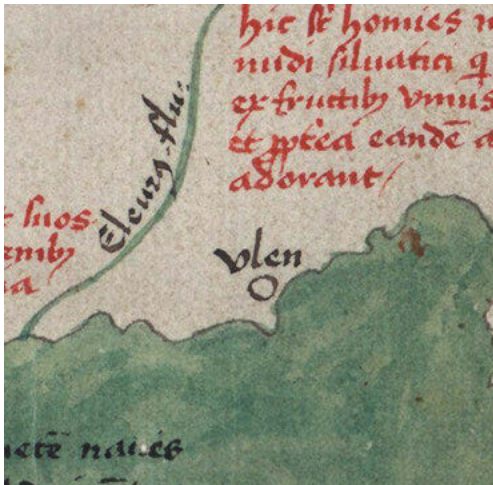 hic sūt homīes n
nudi siluatici q̄
ex fructibꝫ vnius
et ꝓpt̄ea eandē a
adorant /
Eleurg. flu:
suos
enibꝫ
ia
vlen
naues